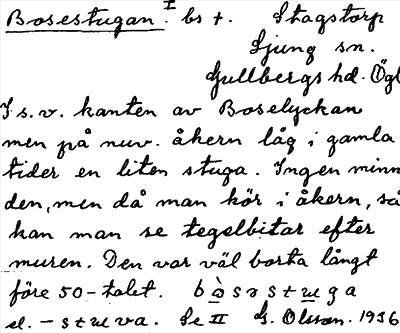 Bosestugan. I bs t. Stagstorp
Ljung sn.
Gullbergs hd. Ögl
I s.v. kanten av Boselyckan
men på nuv. åkern låg i gamla
tider en liten stuga. Ingen minn
den, men då man kör i åkern, så
kan man se tegelbitar efter
muren. Den var väl borta långt
före 50-talet. b ò s ɘ s t ɯ g a
el. – s t ɯ v a. Se II G. Olsson. 1936